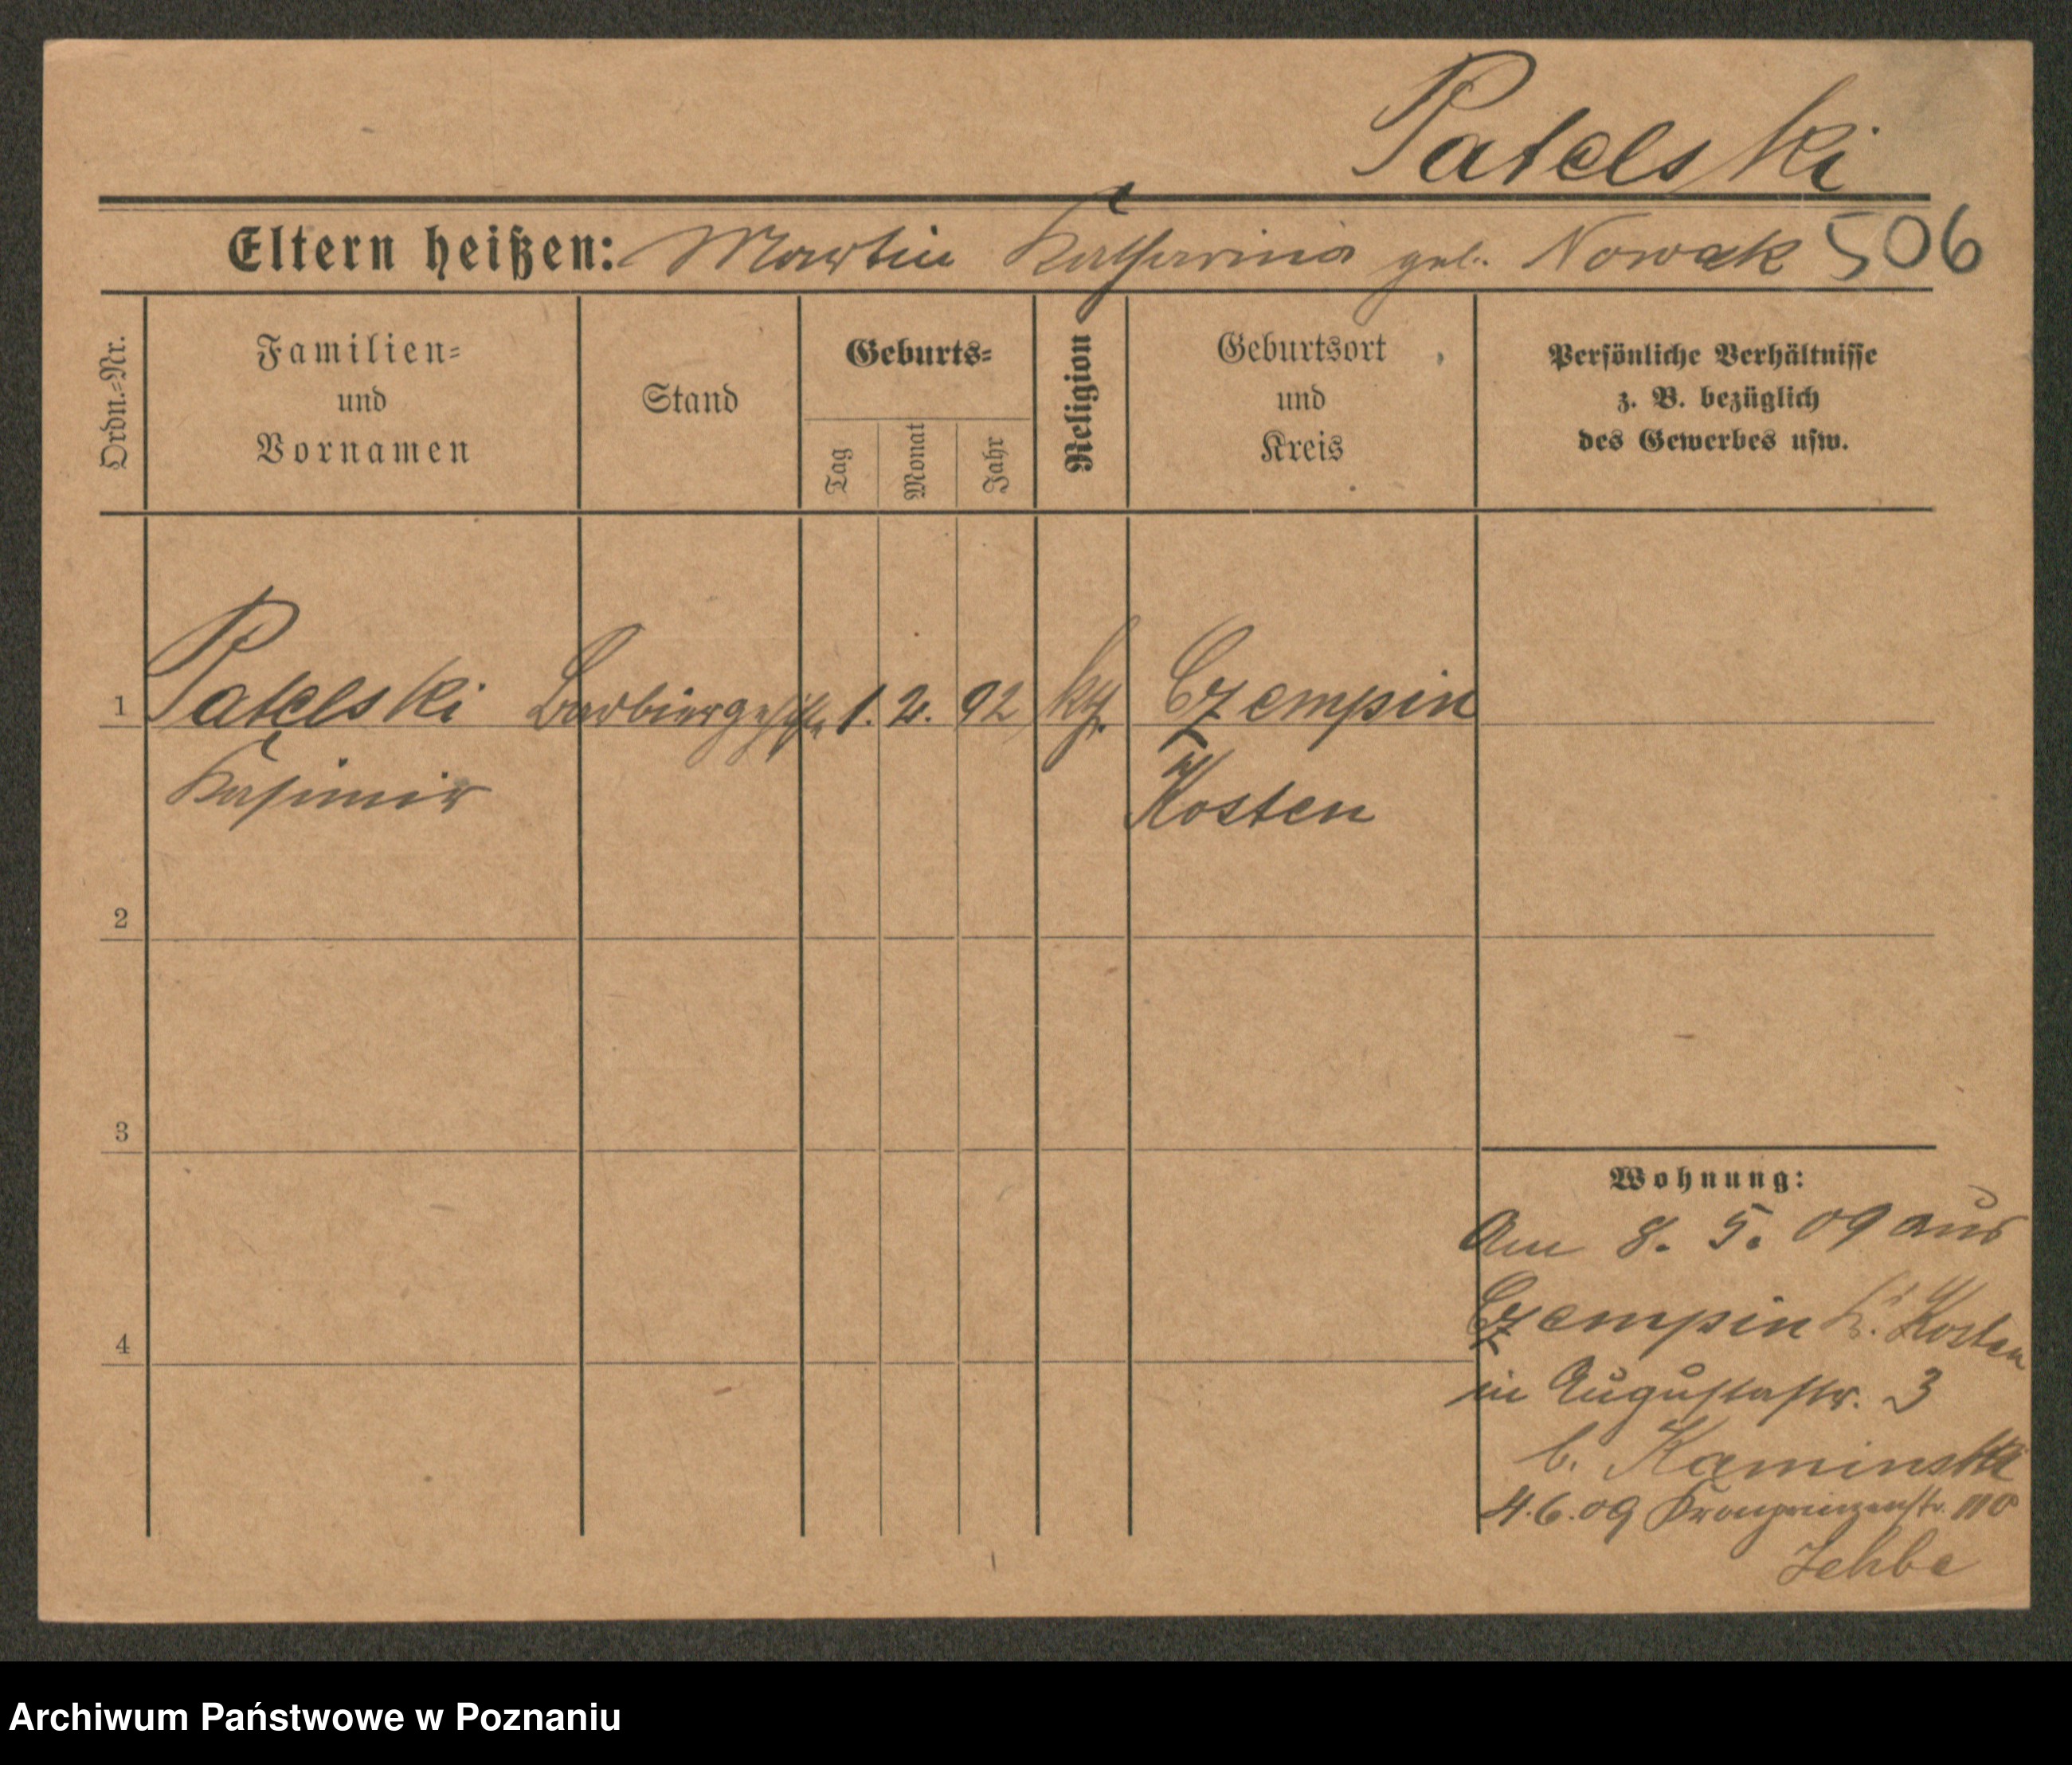 Patelski
Eltern heißen: Martin Katharina geb. Nowak 506
Ordn.-Nr.
Familien-
und
Vornamen
Stand
Geburts-
Tag
Monat
Jahr
Religion
Geburtsort
und
Kreis
Persönliche Verhältnisse
z. B. bezüglich
des Gewerbes usw.
1 Patelski 1. 2. 92 kth. Czempin
Kasimir Kosten
2
3
4
Wohnung:
Am 8. 5. 09 aus
Czempin Kr. Kosten
in Augustastr. 3
b. Kaminski
4.6.09 Kronprinzenstr. 110
Archiwum Państwowe w Poznaniu